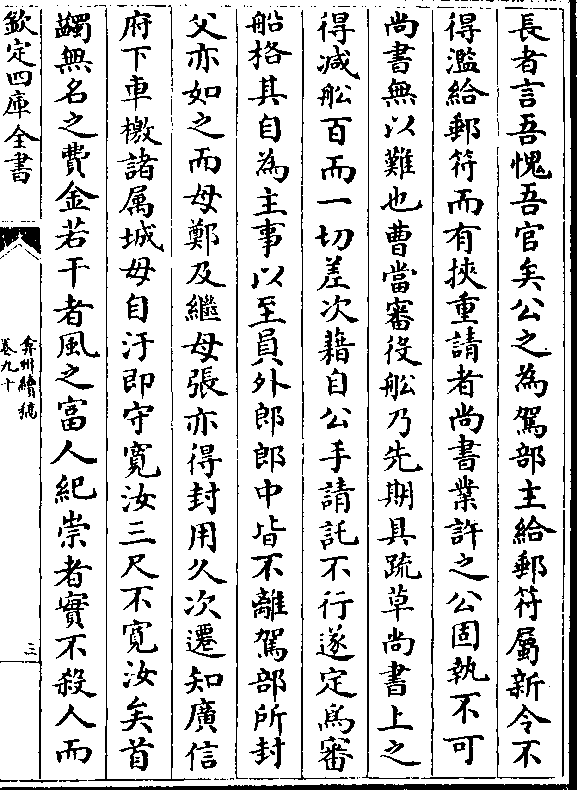 長者言吾愧吾官矣公之為駕部主給郵符屬新令不
得濫給郵符而有挾重請者尚書業許之公固執不可
尚書無以難也曹當審役舩乃先期具疏草尚書上之
得減舩百而一切差次藉自公手請託不行遂定為審
船格其自為主事以至員外郎郎中皆不離駕部所封
父亦如之而母鄭及繼母張亦得封用久次遷知廣信
府下車檄諸属城毋自汙即守寛汝三尺不寛汝矣首
蠲無名之費金若干者風之富人紀崇者實不殺人而
欽定四庫全書
弇州續稿
卷九十
三